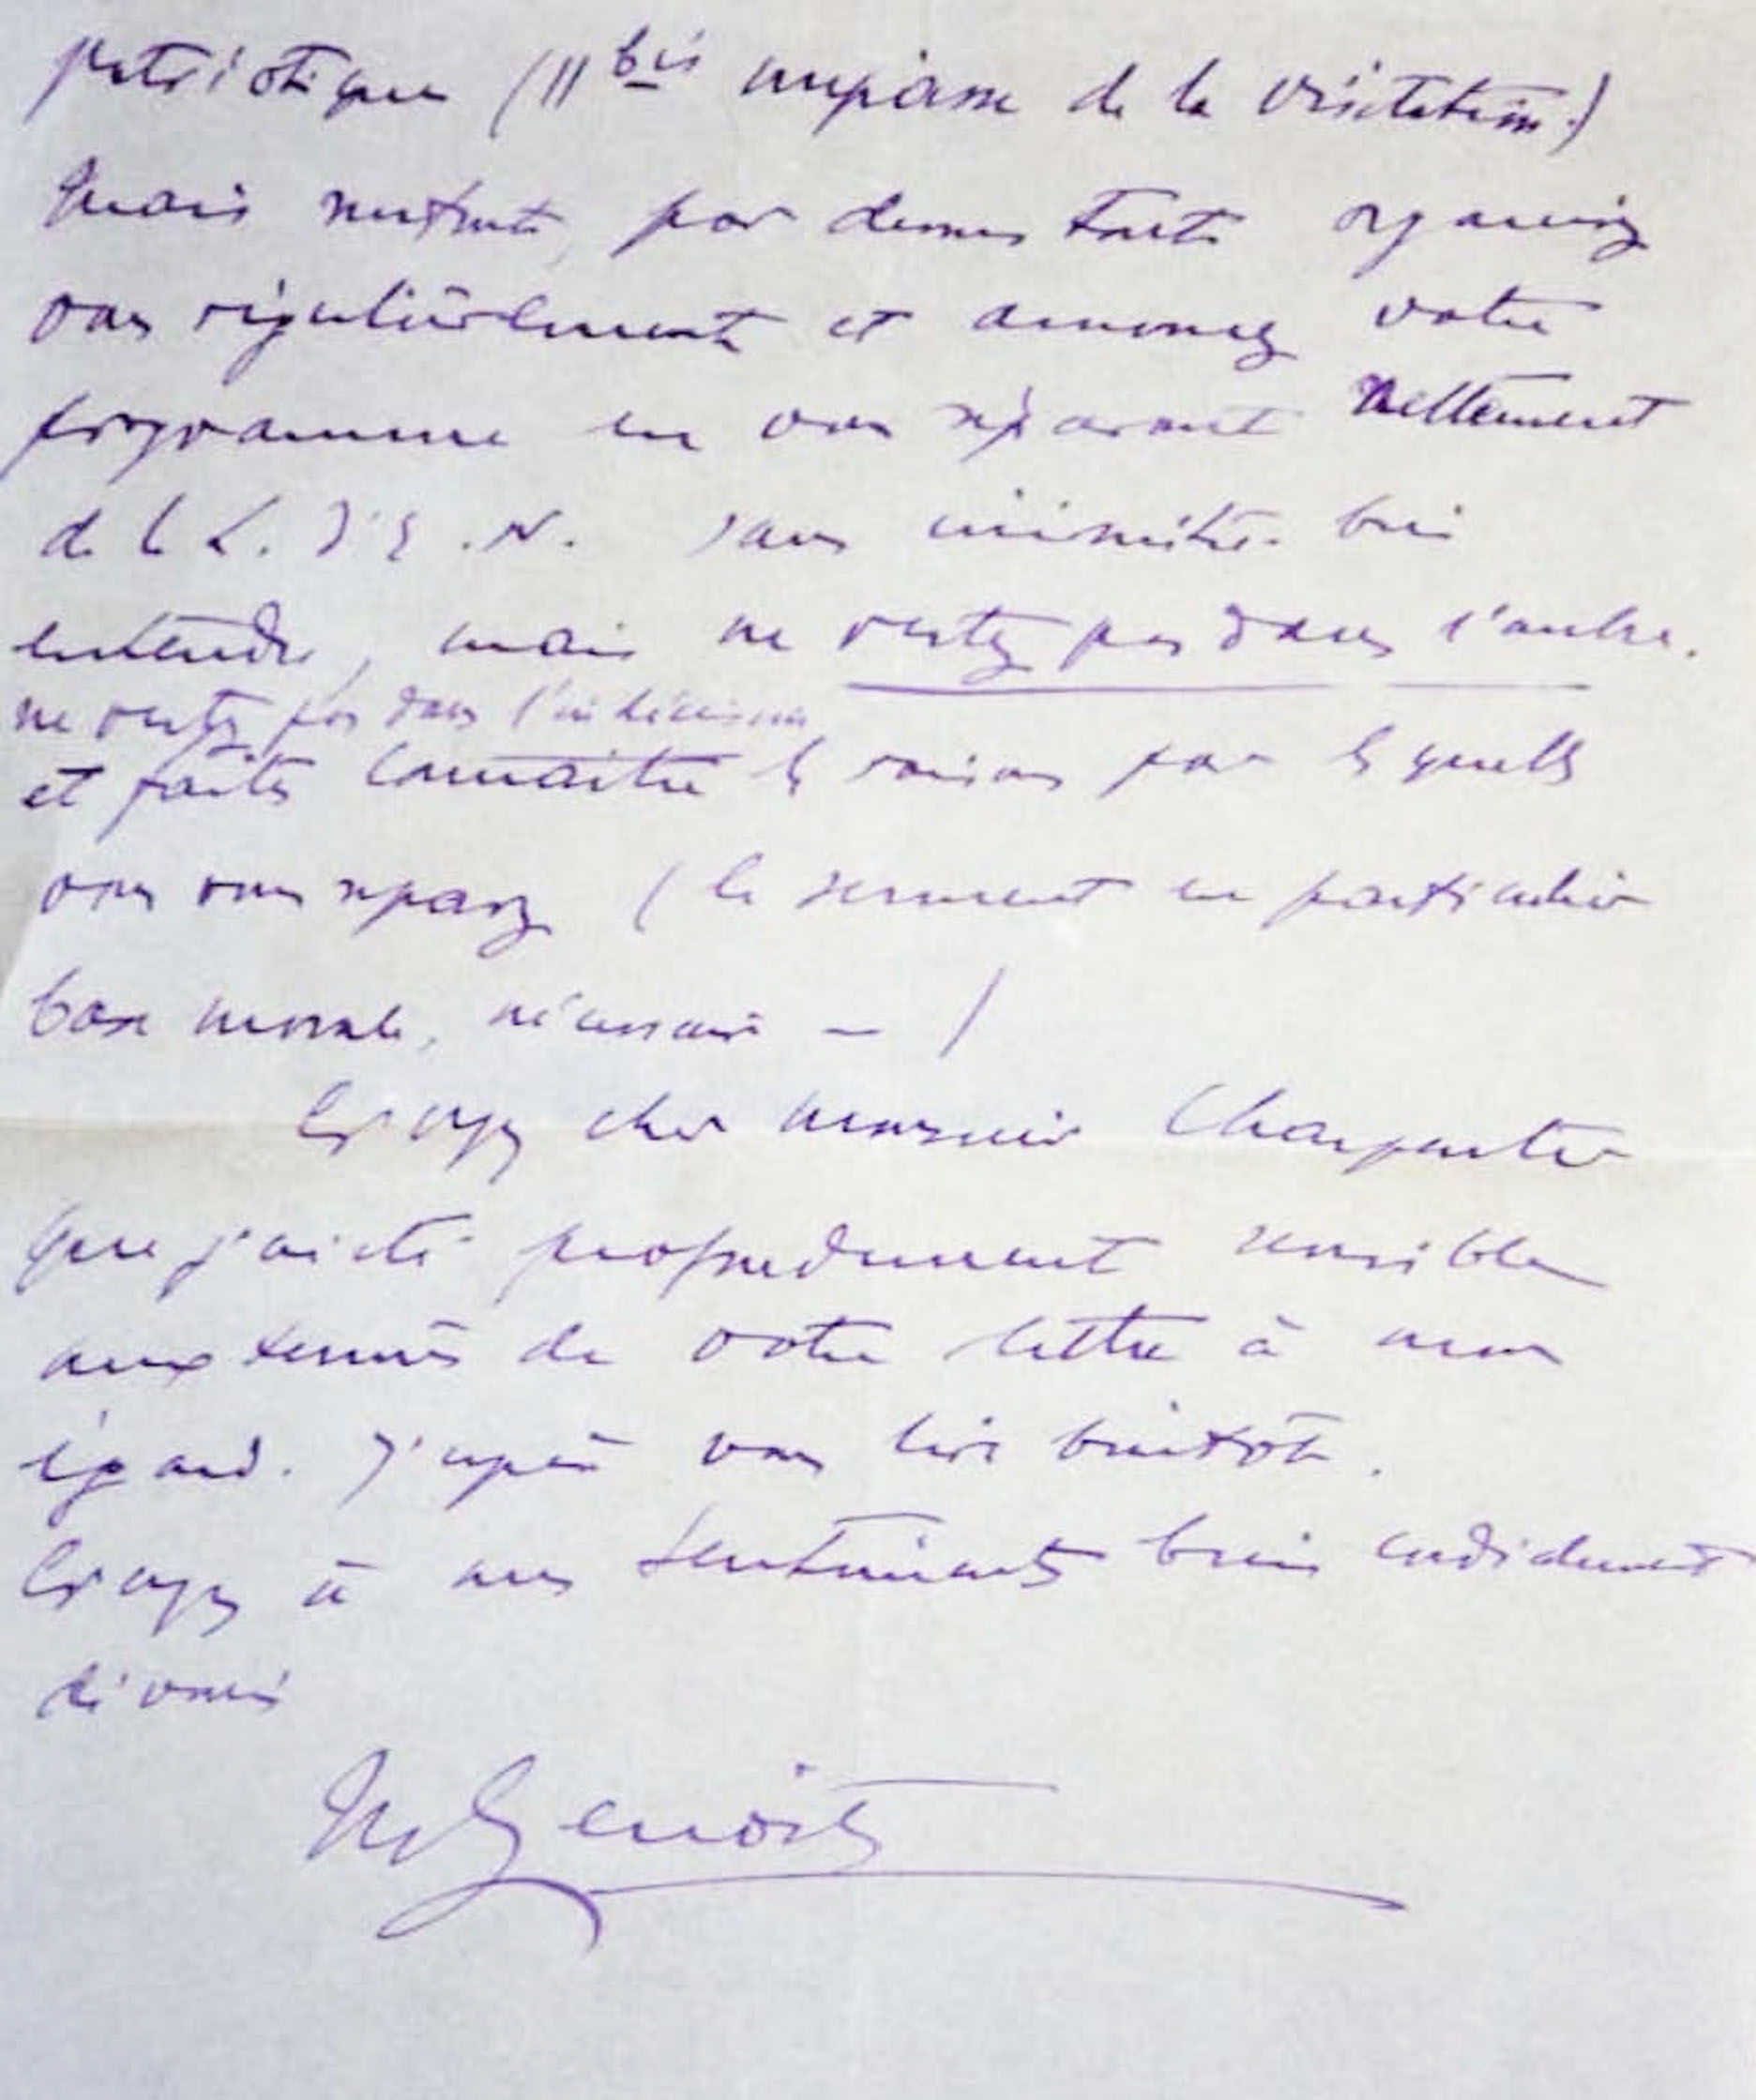 patriotique (11 bis impasse de la Visitation.)
Mais surtout, par dessus tout organisez
vous régulièrement et annoncez votre
programme en vous séparant nettement
de la L. D. E. N. sans inimitié bien
entendu, mais ne restez pas dans l'ombre.
ne restez pas dans l'indécision
et faites connaître les raisons par lesquelles
vous vous séparez (le serment en particulier
base morale, nécessaire — )
Croyez cher monsieur Charpentier
que j'ai été profondément sensible
aux termes de votre lettre à mon
égard. J'espère vous lire bientôt.
Croyez à mes sentiments bien cordialement
dévoués
Benoist